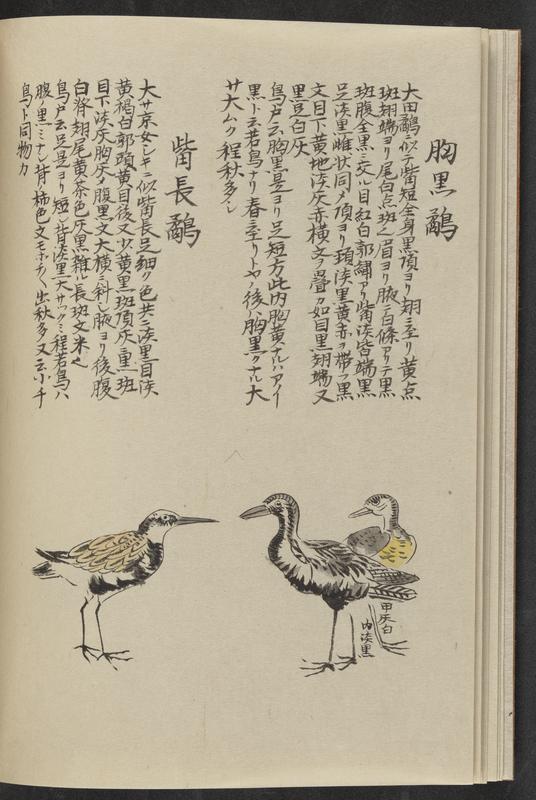 胸黒鷸
大田鷸ニ似テ觜短全身黒頂ヨリ翅ニ至リ黄点
斑翅端ヨリ尾白点斑之眉ヨリ腋ニ白條アリテ黒
斑腹全黒ニ交ル目紅白郭繍アリ觜淡皆端黒
足淡黒雌状同〆頂ヨリ頚淡黒黄赤ヲ帯フ黒
文目下黄地淡灰赤横文ヲ畳ヵ如目里翅端又
黒豆白灰
鳥戸云胸黒是ヨリ足短方此内胸黄ナルハアイ
黒ト云若鳥ナリ春ニ至リトヤノ後ハ胸黒クナル大
サ大ムク程秋多シ
觜長鷸
大サ京女シキニ似觜長足細ク色共ニ淡里目淡
黄褐白郭頭黄目後又少黄里斑頂灰ニ黒斑
目下淡灰胸灰〆腹黒文大横ニ斜シ腋ヨリ後腹
白脊翅尾黄茶色灰黒雑ル長斑文米之
鳥戸云足是ヨリ短シ背淡里大サツクミ程若鳥ハ
腹ノ里ミナシ背柿色文モホチク出秋多又云小千
鳥ト同物カ
甲灰白
内淡黒